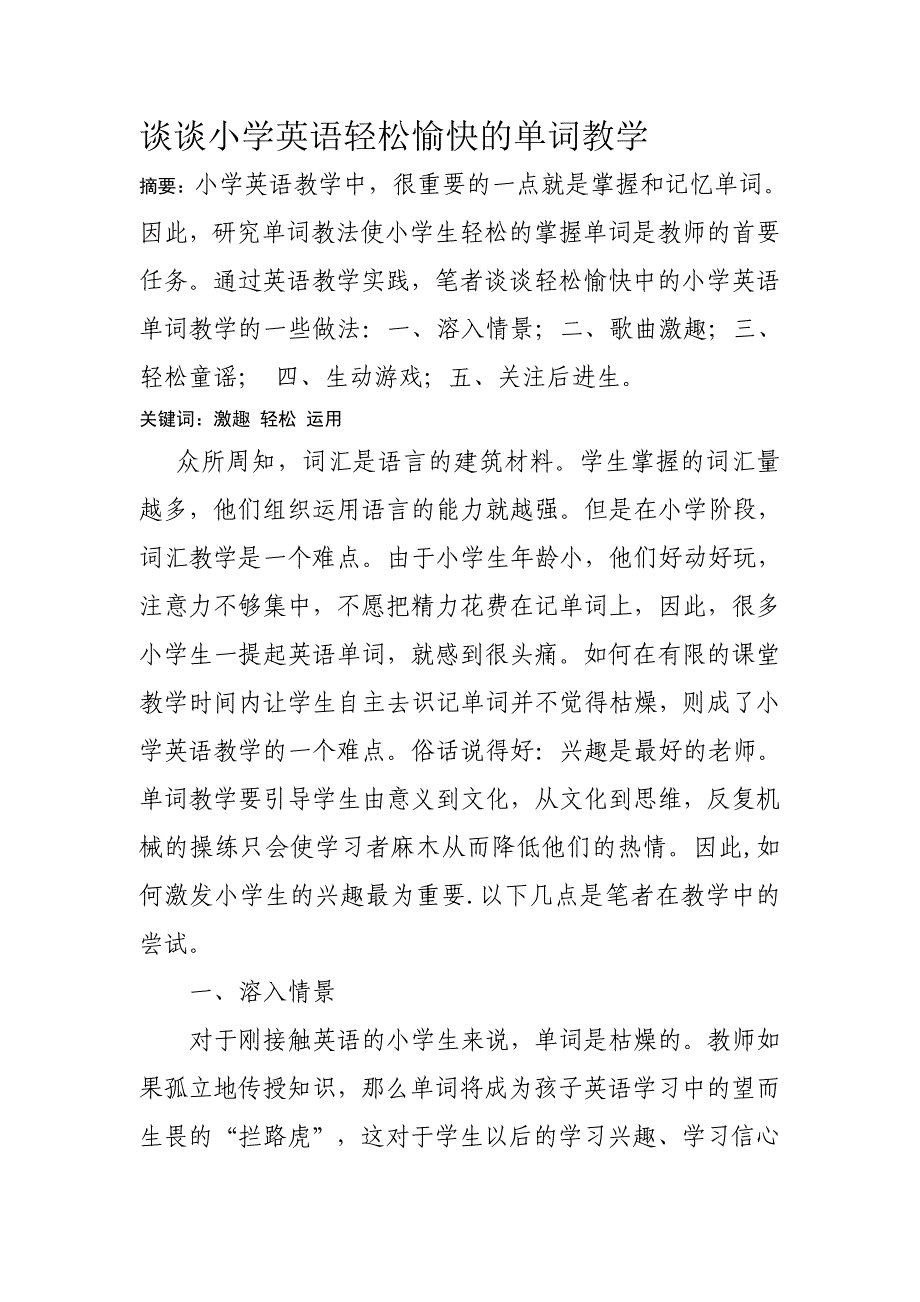 谈谈小学英语轻松愉快的单词教学
摘要：小学英语教学中，很重要的一点就是掌握和记忆单词。
因此，研究单词教法使小学生轻松的掌握单词是教师的首要
任务。通过英语教学实践，笔者谈谈轻松愉快中的小学英语
单词教学的一些做法：一、溶入情景；二、歌曲激趣；三、
轻松童谣； 四、生动游戏；五、关注后进生。
关键词：激趣 轻松 运用
众所周知，词汇是语言的建筑材料。学生掌握的词汇量
越多，他们组织运用语言的能力就越强。但是在小学阶段，
词汇教学是一个难点。由于小学生年龄小，他们好动好玩，
注意力不够集中，不愿把精力花费在记单词上，因此，很多
小学生一提起英语单词，就感到很头痛。如何在有限的课堂
教学时间内让学生自主去识记单词并不觉得枯燥，则成了小
学英语教学的一个难点。俗话说得好：兴趣是最好的老师。
单词教学要引导学生由意义到文化，从文化到思维，反复机
械的操练只会使学习者麻木从而降低他们的热情。因此,如
何激发小学生的兴趣最为重要.以下几点是笔者在教学中的
尝试。
一、溶入情景
对于刚接触英语的小学生来说，单词是枯燥的。教师如
果孤立地传授知识，那么单词将成为孩子英语学习中的望而
生畏的“拦路虎”，这对于学生以后的学习兴趣、学习信心